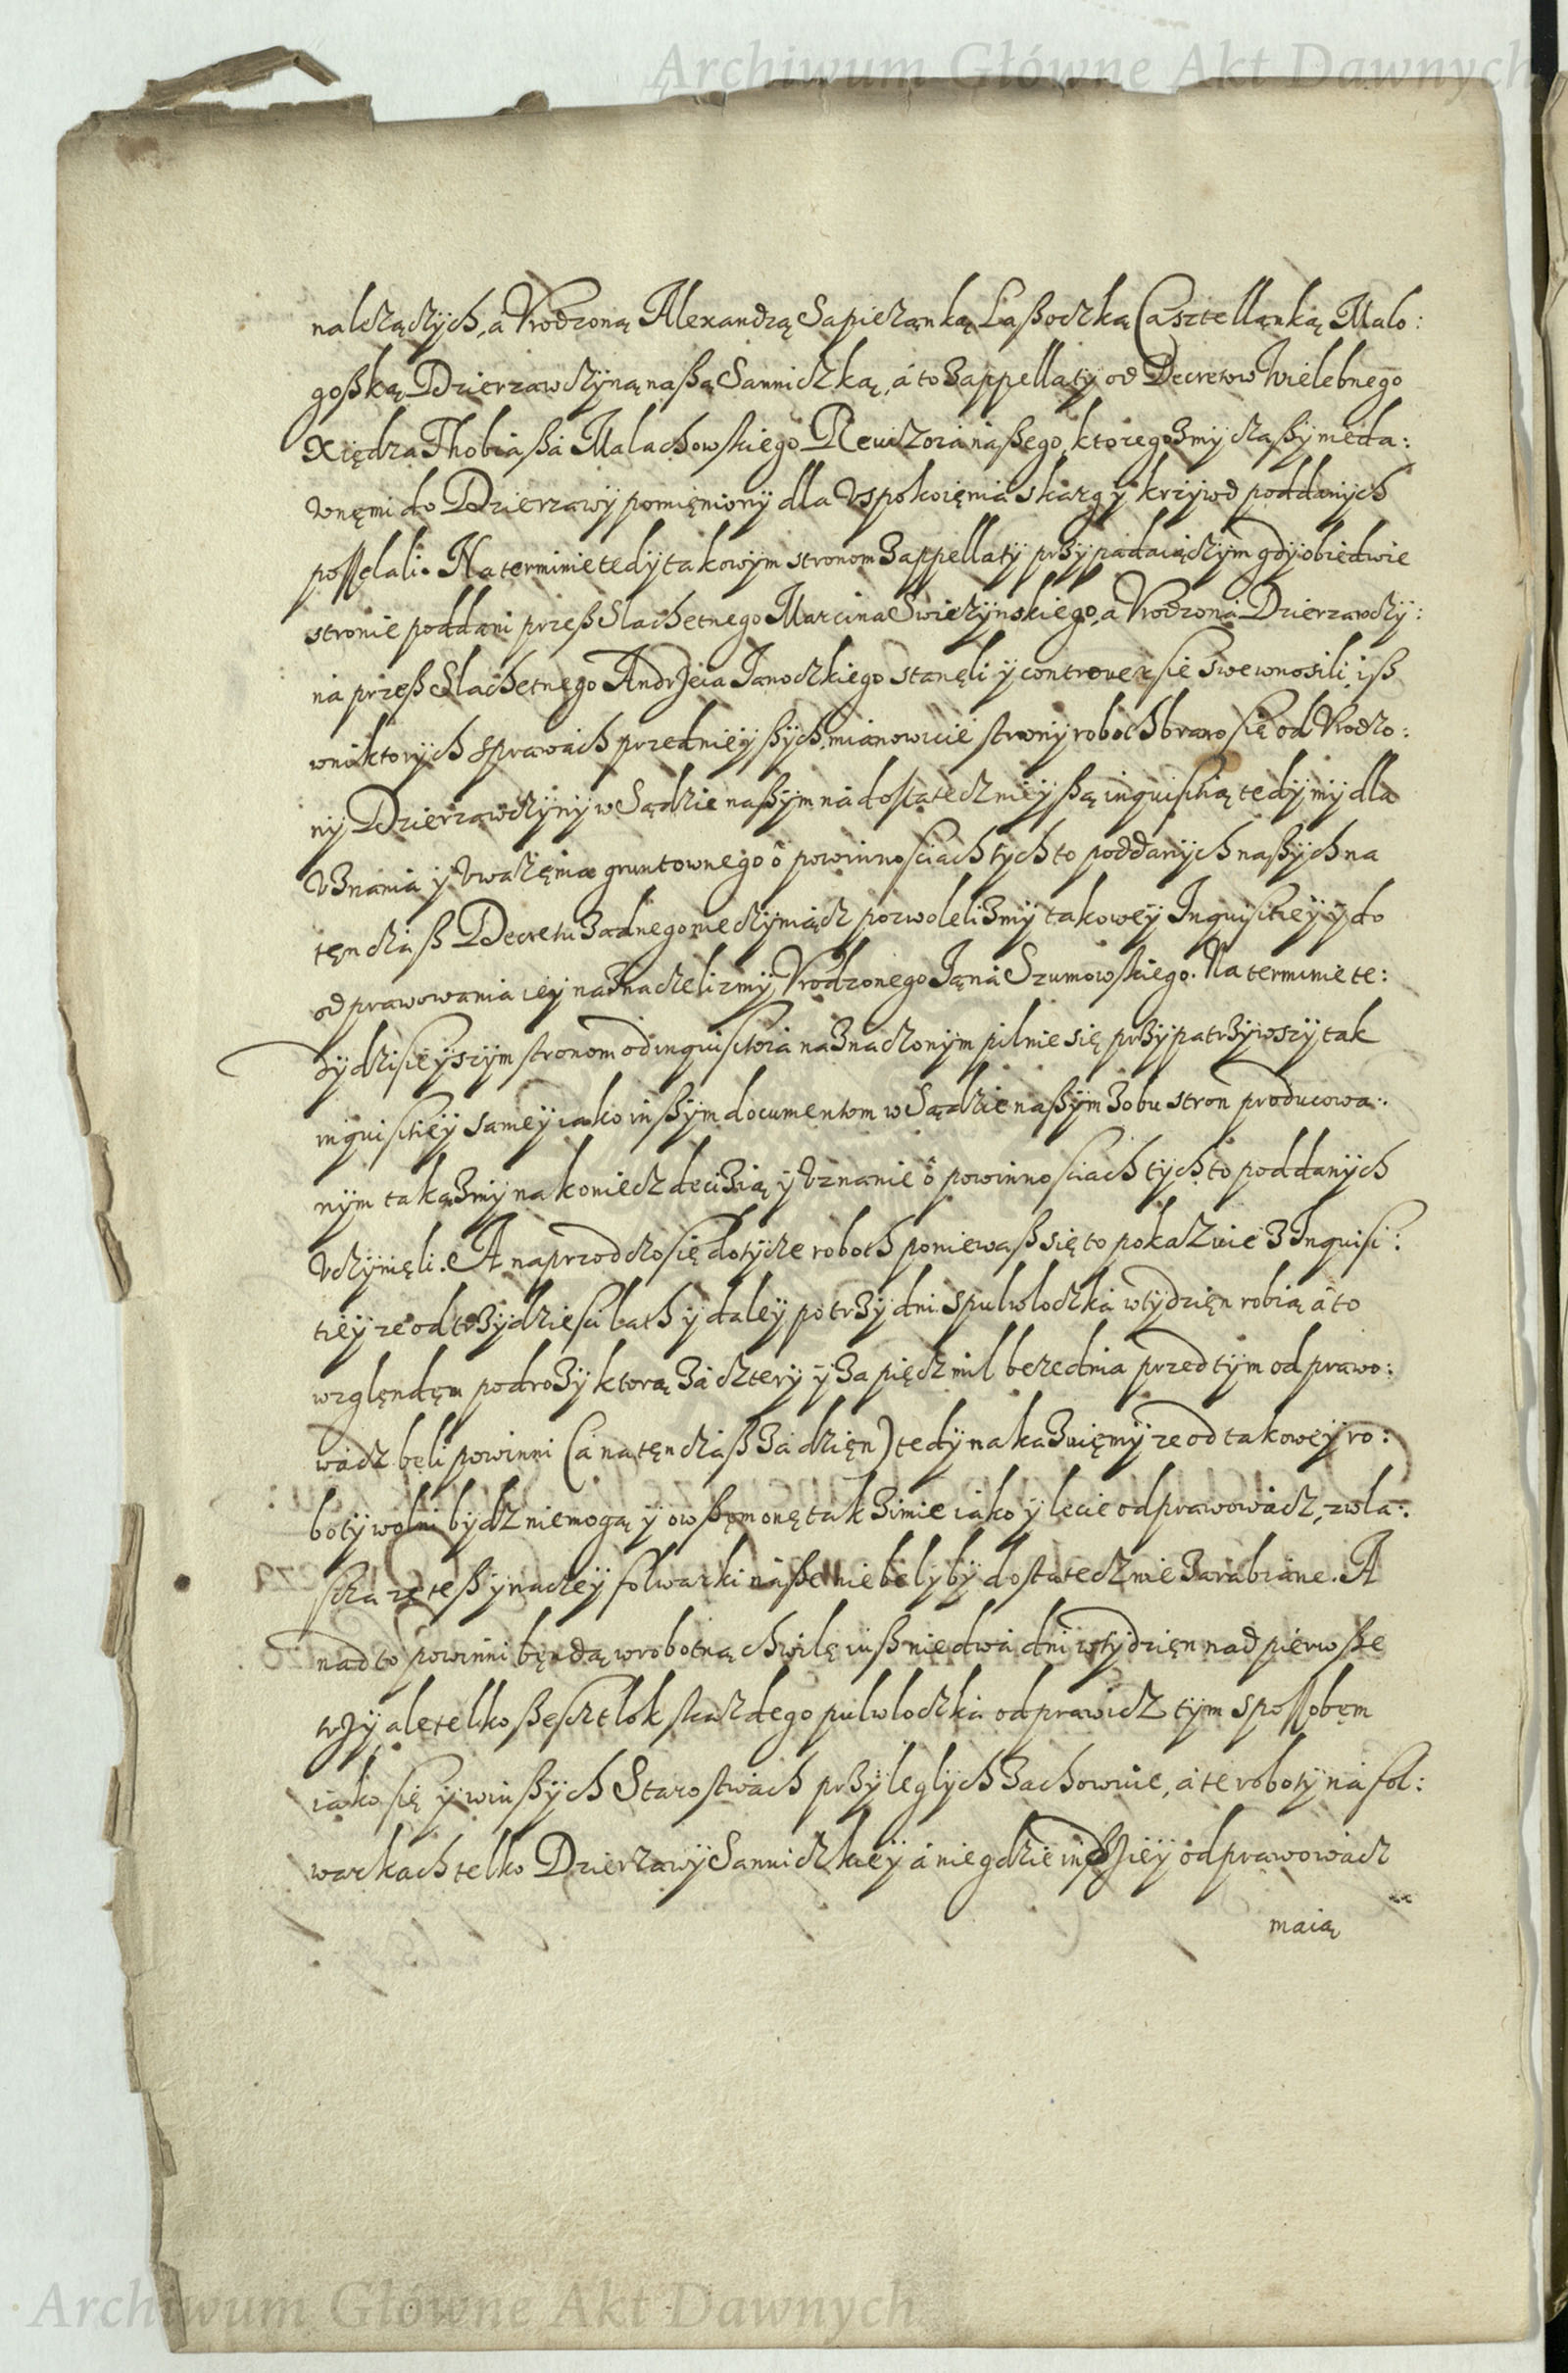 Archiwum Główne Akt Dawnych
nalczączych, a Vrodzoną Alexandrą Sapiezanką Laßoczką Casztellanką Malo:
goßką Dzierzawczÿną naßą Sanniczką, á to z appellatÿ od Decretow Wielebnego
Xiędza Thobiaßa Malachowskiego Reuizora naßego, ktoregozmÿ czaßÿ nieda:
wnęmi do Dzierzawÿ pomięnionÿ dla Vspokoięnia skarg ÿ krziwd poddanÿch
possęlali. Na terminie tedÿ takowÿm stronom z appellatÿ przÿpadaiączÿm gdÿ obiedwie
stronie poddani przeß Slachetnego Marcina Swiezÿnskiego, a Vrodzona Dzierzawczÿ:
na przeß Slachetnego Andrzeia Janoczkiego stanęli ÿ controuersie swe wnosili, iß
wniktorÿch sprawach przednieÿßÿch, mianowicie stronÿ roboth brano się od Vrodzo:
nÿ Dzierzawczÿnÿ w Sądzie naßÿm ná dostatecznieÿßą inquisitią, tedÿ mÿ dla
Vznania ÿ Vwazęnia gruntownego o powinnosciach tÿchto poddanÿch naßÿch na
tęn czaß Decretu zadnego nieczÿniącz pozwolelizmÿ takoweÿ Inquisitieÿ ÿ do
odprawowania ieÿ naznaczelizmÿ Vrodzonego Jana Szumowskiego. Na terminie te:
dÿ dzisieÿszÿm stronom od inquisitora naznaczonÿm pilnie się przÿpatrzÿwszÿ tak
inquisitieÿ sameÿ iako inßÿm documentom w Sądzie naßÿm z obu stron producowa:
nÿm takązmÿ nakoniecz decizią ÿ Vznanie o powinnosciach tÿchto poddanÿch
Vczÿnięli. A naprzod czo się dotÿcze roboth poniewaß się to pokazuie z Inquisi:
tieÿ ze od trzÿdziesci lath ÿ daleÿ po trzÿ dni s pulwloczka w tÿdzięn robią á to
względęm podrozÿ ktorą zá czterÿ ÿ za pięcz mil bezednia przed tÿm odprawo:
wácz beli powinni (á na tęn czáß zá dzięn) tedÿ nakazuięmÿ ze od takoweÿ ro:
botÿ wolni bÿdz niemogą ÿ owßęm onę tak zimie iako ÿ lecie odprawowácz, zwla:
scza ze teß ÿnaczeÿ folwarki náße nie belÿbÿ dostatecznie zarabiane. A
nad to powinni będą w robotną chwilę iuß nie dwa dni w tÿdzięn nad pierwße
trzÿ, ale telko ßęsc tlok s kazdego pulwloczka odprawicz tÿm spossobęm
iako się ÿ w inßÿch Starostwach przÿleglÿch zachowuie, á te robotÿ ná fol:
warkach telko Dzierzawÿ Sanniczkieÿ á nie gdzie indzieÿ odprawowácz
maią
Archiwum Główne Akt Dawnych